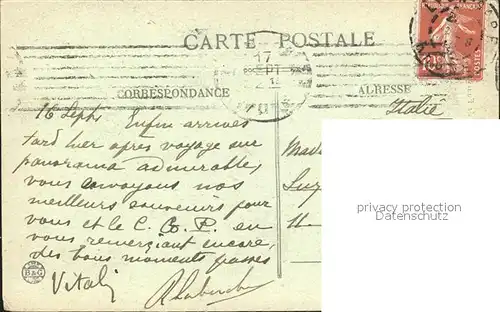 CARTE POSTALE
17
CORRESPONDANCE
ADRESSE
Italie
16 Sept. Enfin arrivés
tard hier après voyage sur
panorama admirable,
vous envoyons nos
meilleurs souvenirs pour
vous et le C. G. P. en
vous remerciant encore,
des bons moments passés
Vitali
B&G
privacy protection
Datenschutz